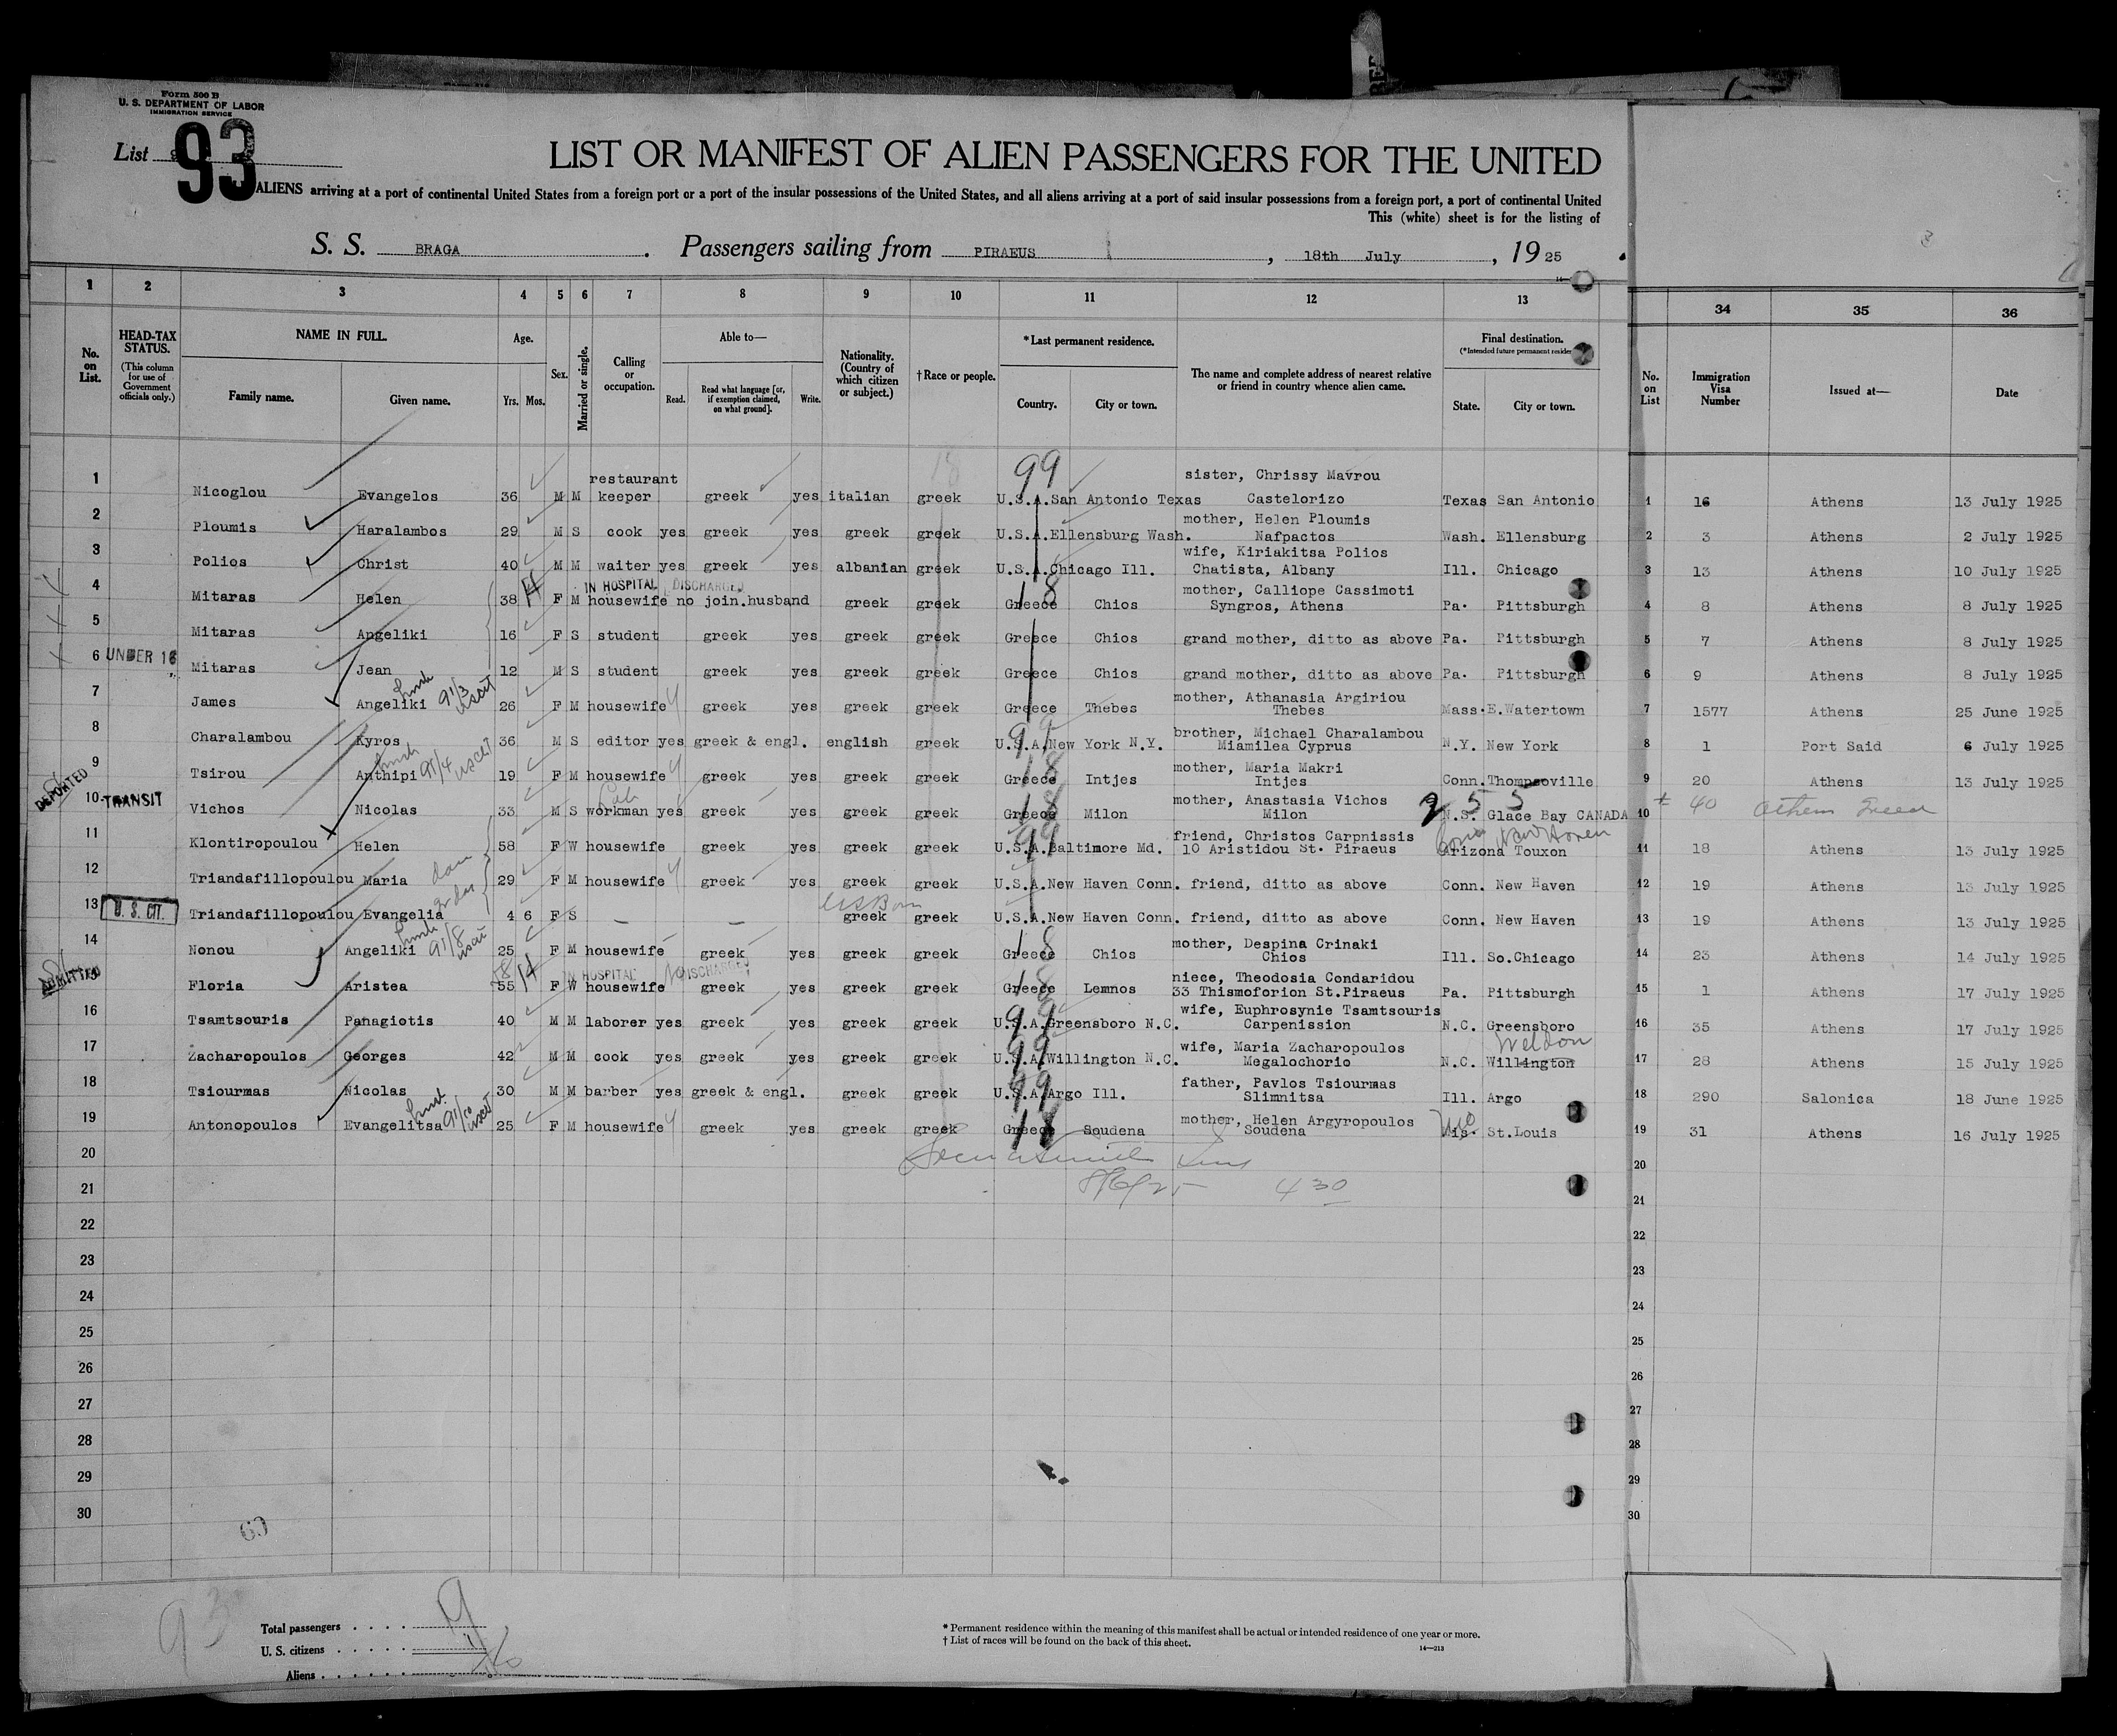 Form 500 B
U. S. DEPARTMENT OF LABOR
IMMIGRATION SERVICE
List 93
LIST OR MANIFEST OF ALIEN PASSENGERS FOR THE UNITED
ALIENS arriving at a port of continental United States from a foreign port or a port of the insular possessions of the United States, and all aliens arriving at a port of said insular possessions from a foreign port, a port of continental United
This (white) sheet is for the listing of
S. S. BRAGA. Passengers sailing from PIRAEUS, 18th July, 1925
1 2 3 4 5 6 7 8 9 10 11 12 13 34 35 36
No. on List.
HEAD-TAX STATUS.
(This column for use of Government officials only.)
NAME IN FULL.
Family name. Given name.
Age.
Yrs. Mos.
Sex.
Married or single.
Calling or occupation.
Able to—
Read. Read what language [or, if exemption claimed, on what ground]. Write.
Nationality. (Country of which citizen or subject.)
† Race or people.
* Last permanent residence.
Country. City or town.
The name and complete address of nearest relative or friend in country whence alien came.
Final destination.
(* Intended future permanent
State. City or town.
No. on List
Immigration Visa Number
Issued at—
Date
1 Nicoglou Evangelos 36 M M restaurant keeper greek yes italian greek 99 U.S.A. San Antonio Texas sister, Chrissy Mavrou Castelorizo Texas San Antonio 1 16 Athens 13 July 1925
2 Ploumis Haralambos 29 M S cook yes greek yes greek greek U.S.A. Ellensburg Wash. mother, Helen Ploumis Nafpactos Wash. Ellensburg 2 3 Athens 2 July 1925
3 Polios Christ 40 M M waiter yes greek yes albanian greek U.S.A. Chicago Ill. wife, Kiriakitsa Polios Chatista, Albany Ill. Chicago 3 13 Athens 10 July 1925
IN HOSPITAL DISCHARGED
4 Mitaras Helen 38 F M housewife no join.husband greek greek Greece Chios mother, Calliope Cassimoti Syngros, Athens Pa. Pittsburgh 4 8 Athens 8 July 1925
5 Mitaras Angeliki 16 F S student greek yes greek greek Greece Chios grand mother, ditto as above Pa. Pittsburgh 5 7 Athens 8 July 1925
6 UNDER 16 Mitaras Jean 12 M S student greek yes greek greek Greece Chios grand mother, ditto as above Pa. Pittsburgh 6 9 Athens 8 July 1925
7 James Angeliki 26 F M housewife greek yes greek greek Greece Thebes mother, Athanasia Argiriou Thebes Mass. E.Watertown 7 1577 Athens 25 June 1925
8 Charalambou Kyros 36 M S editor yes greek & engl. english greek U.S.A. New York N.Y. brother, Michael Charalambou Miamilea Cyprus N.Y. New York 8 1 Port Said 6 July 1925
9 Tsirou Anthipi 19 F M housewife greek yes greek greek Greece Intjes mother, Maria Makri Intjes Conn. Thompsoville 9 20 Athens 13 July 1925
DEPORTED
10 TRANSIT Vichos Nicolas 33 M S workman yes greek yes greek greek Greece Milon mother, Anastasia Vichos Milon N.S. Glace Bay CANADA 10 40 Athens Greece
11 Klontiropoulou Helen 58 F W housewife greek yes greek greek U.S.A. Baltimore Md. friend, Christos Carpnissis 10 Aristidou St. Piraeus Arizona Touxon 11 18 Athens 13 July 1925
12 Triandafillopoulou Maria 29 F M housewife greek yes greek greek U.S.A. New Haven Conn. friend, ditto as above Conn. New Haven 12 19 Athens 13 July 1925
13 U. S. CIT. Triandafillopoulou Evangelia 4 6 F S — — US Born greek greek U.S.A. New Haven Conn. friend, ditto as above Conn. New Haven 13 19 Athens 13 July 1925
14 Nonou Angeliki 25 F M housewife greek yes greek greek Greece Chios mother, Despina Crinaki Chios Ill. So.Chicago 14 23 Athens 14 July 1925
ADMITTED IN HOSPITAL DISCHARGED
15 Floria Aristea 55 F W housewife greek yes greek greek Greece Lemnos niece, Theodosia Condaridou 33 Thismoforion St.Piraeus Pa. Pittsburgh 15 1 Athens 17 July 1925
16 Tsamtsouris Panagiotis 40 M M laborer yes greek yes greek greek U.S.A. Greensboro N.C. wife, Euphrosynie Tsamtsouris Carpenission N.C. Greensboro 16 35 Athens 17 July 1925
Weldon
17 Zacharopoulos Georges 42 M M cook yes greek yes greek greek U.S.A. Willington N.C. wife, Maria Zacharopoulos Megalochorio N.C. Willington 17 28 Athens 15 July 1925
18 Tsiourmas Nicolas 30 M M barber yes greek & engl. greek greek U.S.A. Argo Ill. father, Pavlos Tsiourmas Slimnitsa Ill. Argo 18 290 Salonica 18 June 1925
19 Antonopoulos Evangelitsa 25 F M housewife greek yes greek greek Greece Soudena mother, Helen Argyropoulos Soudena Mis. St.Louis 19 31 Athens 16 July 1925
20 20
21 430 21
22 22
23 23
24 24
25 25
26 26
27 27
28 28
29 29
30 30
93
Total passengers
U. S. citizens
Aliens
* Permanent residence within the meaning of this manifest shall be actual or intended residence of one year or more.
† List of races will be found on the back of this sheet.
14—213